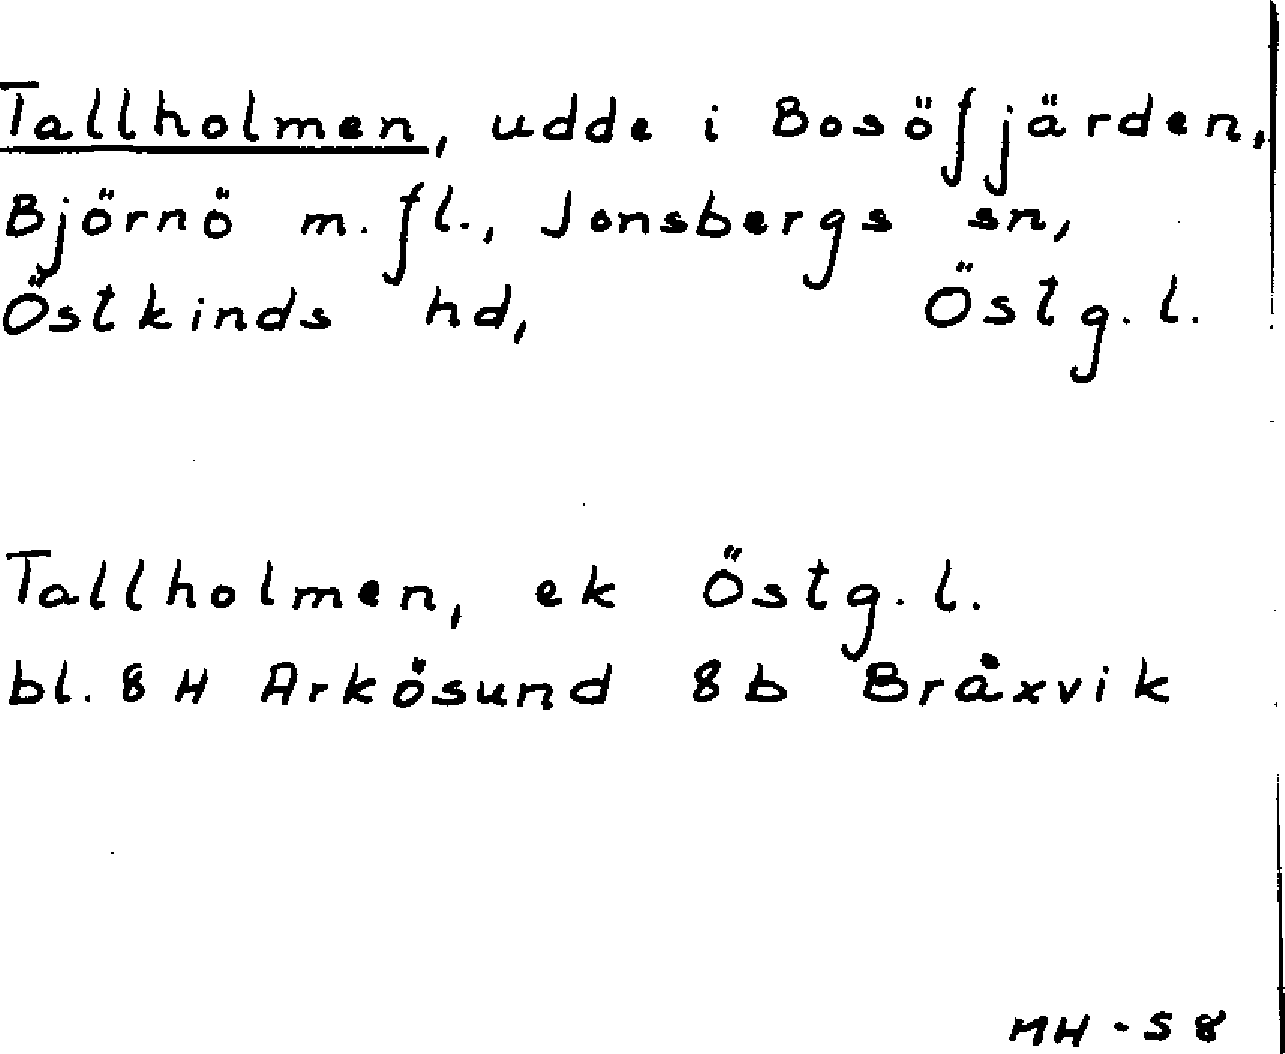 Tallholmen, udde i Bosöfjärden,
Björnö m.fl., Jonsbergs sn,
Östkinds hd, Östg.l.
Tallholmen, ek Östg.l.
bl. 8 H Arkösund 8 b Bråxvik
MH - 58